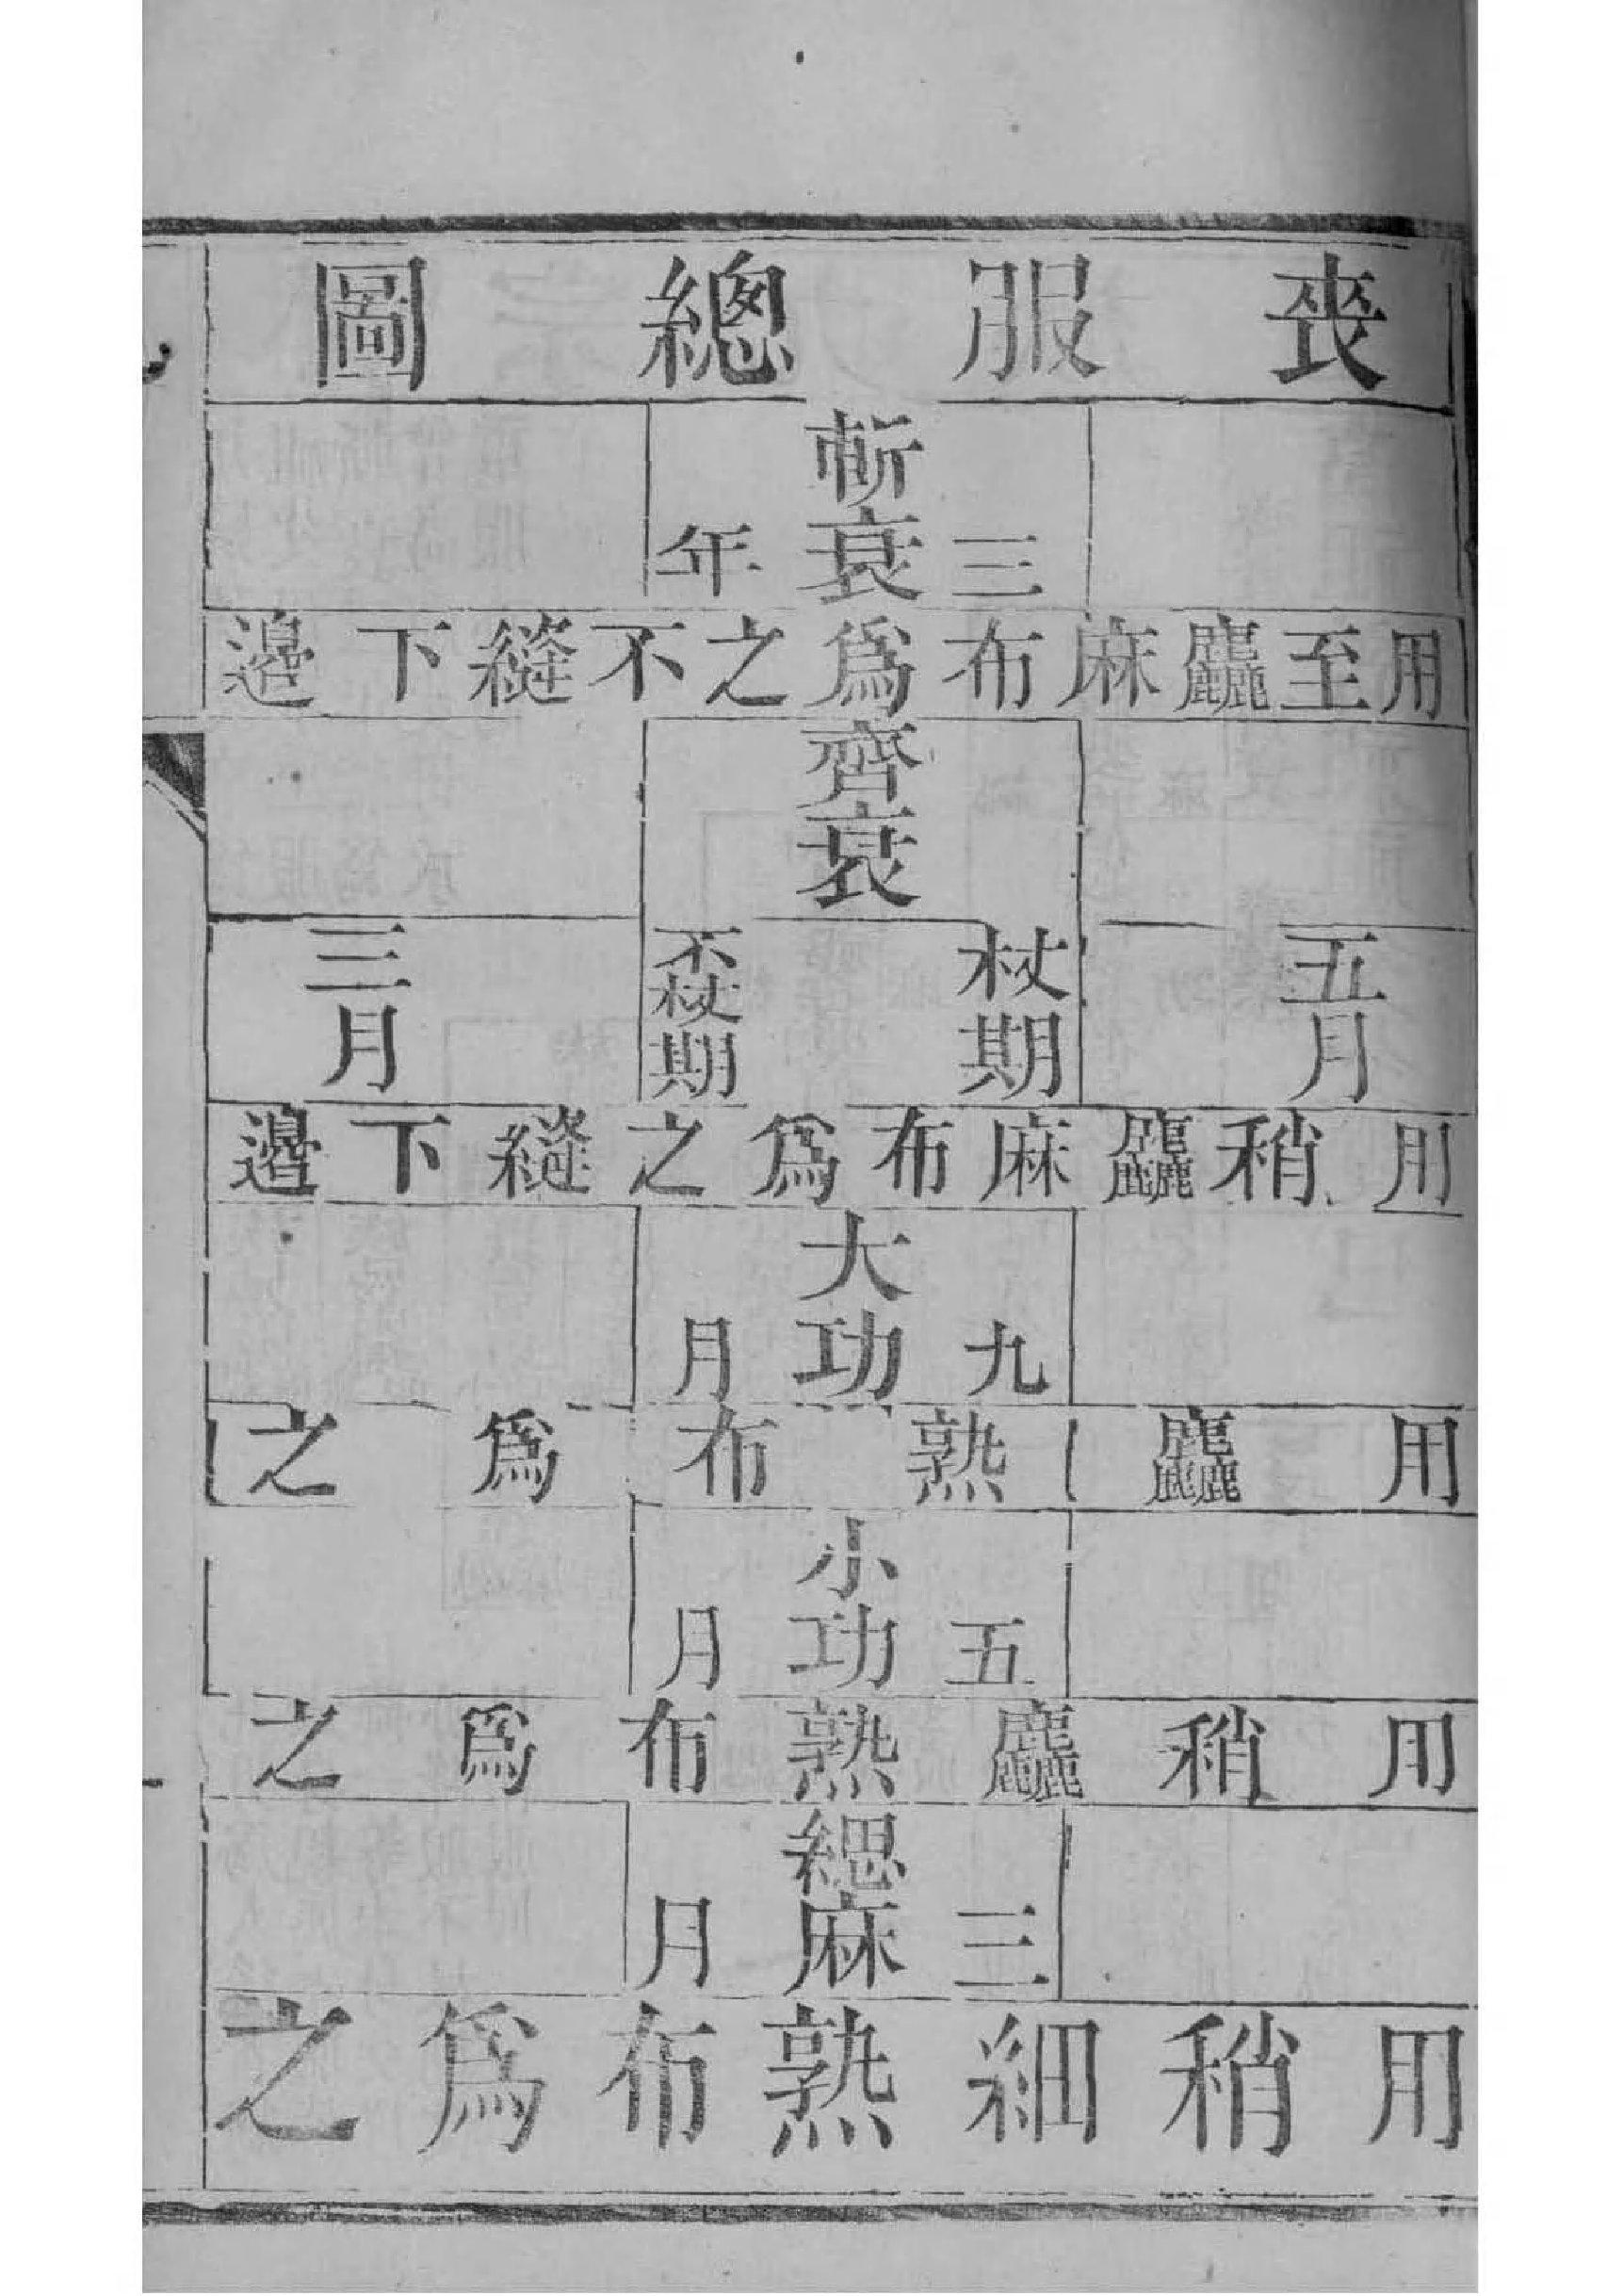 喪服總圖
斬衰
三年
用至麤麻布爲之不縫下邊
齊衰
五月
杖期
不杖期
三月
用稍麤麻布爲之縫下邊
大功
九月
用麤熟布爲之
小功
五月
用稍麤熟布爲之
緦麻
三月
用稍細熟布爲之